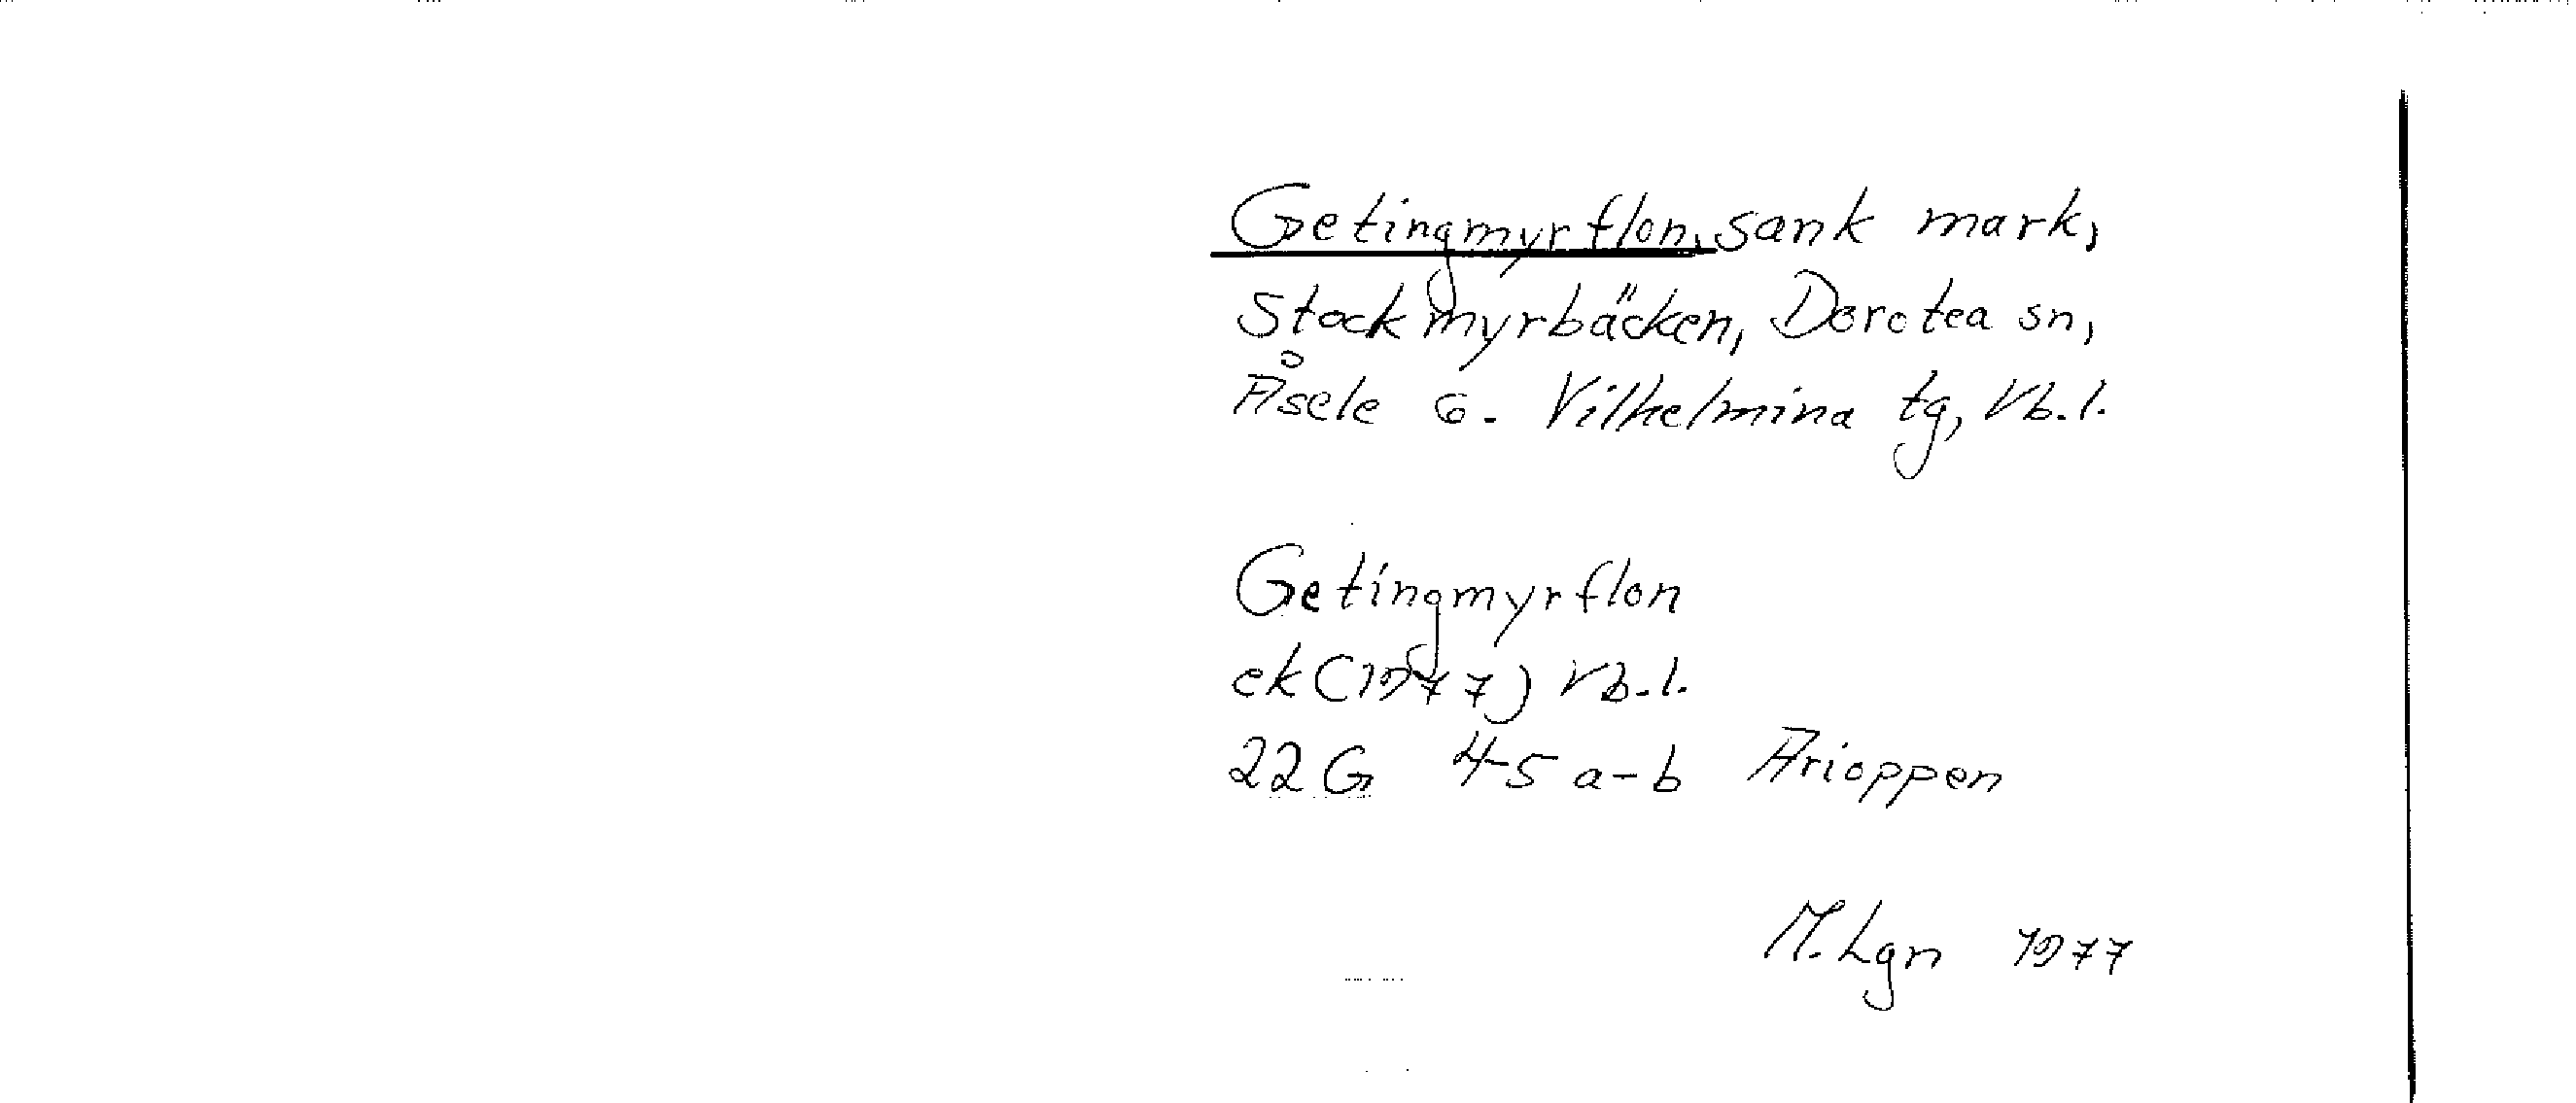 Getingmyrflon, sank mark,
Stockmyrbäcken, Dorotea sn,
Åsele o. Vilhelmina tg, Vb.l.
Getingmyrflon
ek (1977) Vb.l.
22G 4-5 a-b Arioppen
M. Lgn 1977